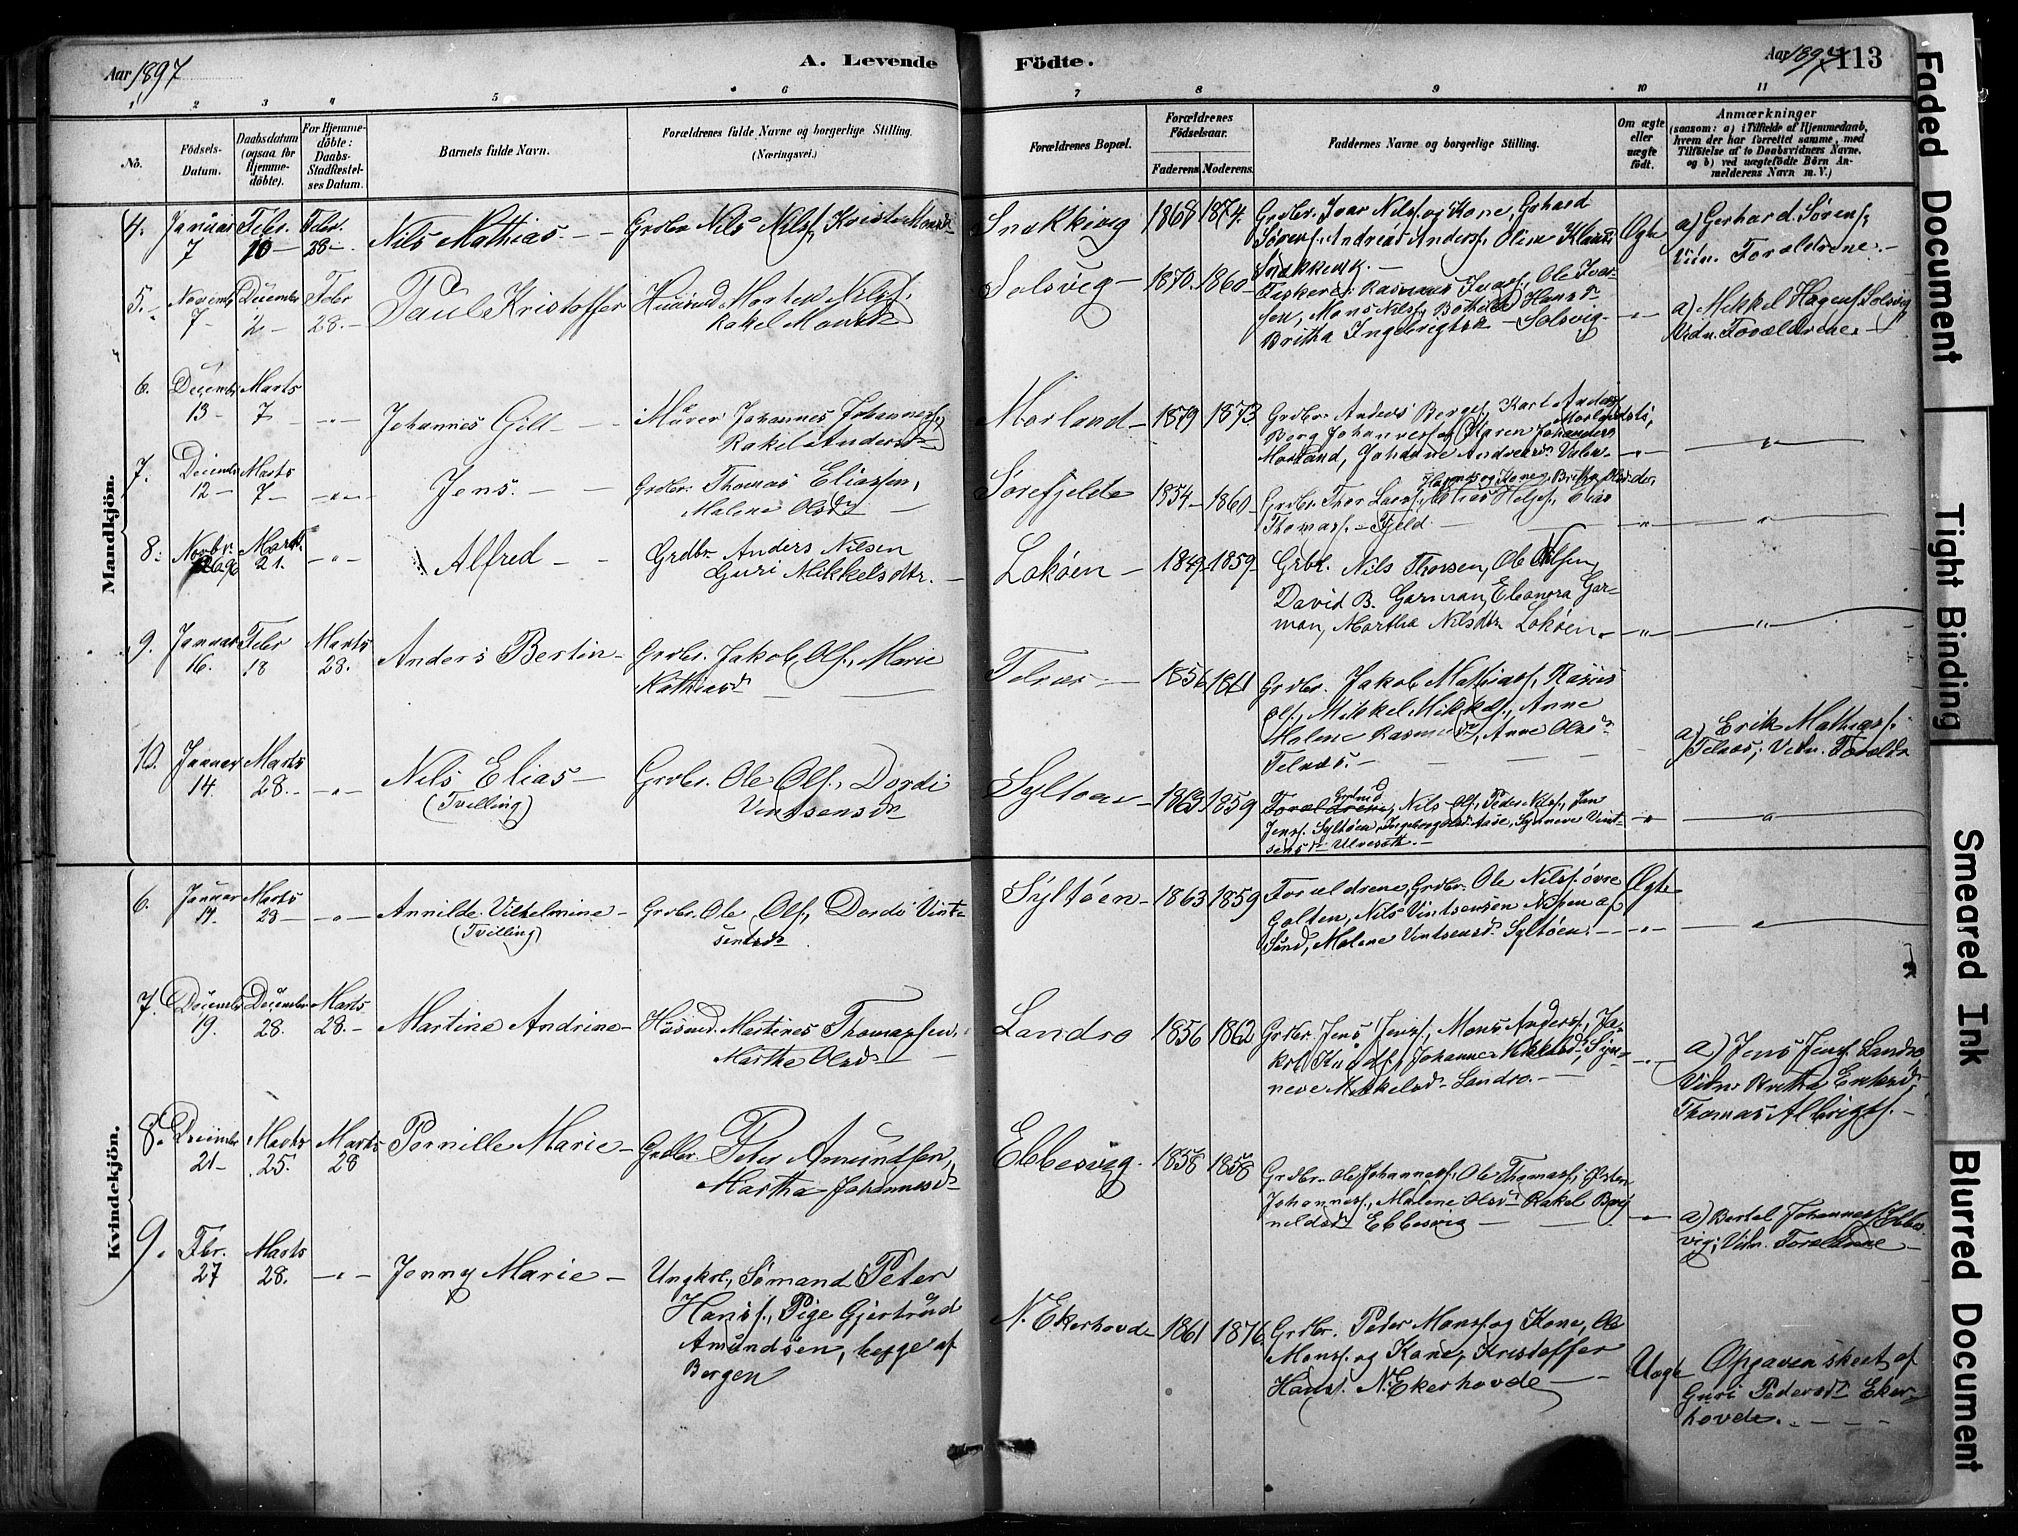 Aar 1897
A. Levende
Födte.
Aar 1897
113
1
2
3
4
5
6
7
8
9
10
11
No.
Födsels-
Datum.
Daabsdatum
(ogsaa for
Hjemme-
döbte).
For Hjemme-
döbte:
Daabs-
Stadfæstel-
ses Datum.
Barnets fulde Navn.
Forældrenes fulde Navne og borgerlige Stilling.
(Næringsvei.)
Forældrenes Bopæl.
Forældrenes
Födselsaar.
Faderens
Moderens.
Faddernes Navne og borgerlige Stilling.
Om ægte
eller
uægte
födt.
Anmærkninger
(saasom: a) i Tilfælde af Hjemmedaab,
hvem der har forrettet samme, med
Tilföielse af to Daabsvidners Navne,
og b) ved uægtefödte Börn An-
melderens Navn m. V.)
Mandkjön.
4. Januar 7 Febr. 10 Febr. 28 Nils Mathias Grdbr. Nils Nilss.,
1868 1874 Grdbr. Ivar Nilss. og Kone, Gerhard
Sørens., Andreas Anders., Oline
Ægte a) Gerhard Sørens.,
Vidn. Forældrene.
5. Novemb. 7 December 2 Febr 28. Paul Kristoffer Husmd. Morten Nilss.,
Rakel Monsd.
Solsvig 1870 1860 Fisker Rasmus Ivars., Ole Ivar-
sen, Mons Nilss., Hansd.
Britha Ingebrigtsd. Solsvig.
" a) Mikkel Hagens. Solsvig
Vidn. Forældrene.
6. December 13 Marts 7 " Johannes Gill Murer Johannes Johanness.,
Rakel Andersd.
Morland 1879 1873 Grdbr. Anders Berges., Karl Anders.
Morland, Johanne Andreasd. Valen
" "
7. December 12 Marts 7 " Jens. Grdbr. Thomas Eliassen,
Malene Olsdr
Sørefjelde 1854 1860 Grdbr. Thor Lars., Elias
Thomass. Fjeld
" "
8. Novbr. 96 Marts 21. " Alfred Grdbr. Anders Nilsen
Guri Mikkelsdtr.
Lokøen 1849 1859 Grbr. Nils Thorsen, Ole Olsen,
David B. Garman, Eleonora Gar-
man, Martha Nilsdtr Lokøen.
" "
9. Januar 16. Febr 18 Marts 28. Anders Bertin Grdbr. Jakob Ols., Marie
Mathiasd.
Telnæs 1856 1861 Grdbr. Jakob Mathiass., Rasmus
Ols., Mikkel Mikkels., Anne
Malene Rasmusd., Anne Olsd.
Telnæs.
a) Erik Mathiass.
Telnæs; Vidn. Forældr.
10. Januar 14. Marts 28. " Nils Elias
(Tvilling)
Grdbr. Ole Ols., Dordi
Vintsensdr
Syltøen 1863 1859 Forældrene, Nils Ols., Peder Nilss., Jens
Jenss. Syltøen, Ingeborg Olsd. Aase, Synneve Vint-
sensd. Ulvesæth.
" "
Kvindekjön.
6. Januar 14 Marts 28 " Annilde Vilhelmine
(Tvilling)
Grdbr. Ole Ols., Dordi Vint-
sensdr
Syltøen 1863 1859 Forældrene, Grdbr. Ole Nilss. øvre
Golten, Nils Vintsensen af
Sund, Malene Vintsensd. Syltøen.
Ægte
" "
7. December 19. December 28. Marts 28. Martine Andrine Husmd. Martines Thomassen,
Marthe Olsd.
Landro 1856 1862 Grdbr. Jens Jenss., Mons Anders., Ja-
kob Knuds., Johanne Mikkelsd., Syn-
neve Mikkelsd. Landro.
" a) Jens Jenss. Landro,
Vidn. Britha
Thomas Albrigts.
8. December 21 Marts 25. Marts 28 Pernille Marie Grdbr. Peter Amundsen,
Martha Johannesd.
Ebbesvig. 1858 1858 Grdbr. Ole Johanness., Ole Thomass.,
Johanness., Malene Olsd. Rakel
Ebbesvig
" a) Bertel Johanness. Ebbes-
vig; Vidn. Forældrene
9. Fbr. 27 Marts 28. " Jenny Marie Ungkrl., Sømand Peter
Hanss., Pige Gjertrud
Amundsen, begge af
Bergen
N. Ekerhovde 1861 1876 Grdbr. Peder Monss. og Kone, Ole
Monss. og Kone, Kristoffer
Hanss. N. Ekerhovde
Uægte Opgaven skeet af
Guri Pedersd. Eker-
hovde.
Faded Document
Tight Binding
Smeared Ink
Blurred Document